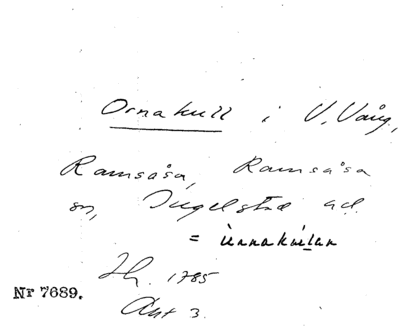 Ornakull i V. Vång,
Ramsåsa, Ramsåsa
sn, Ingelstad hd.
=
Hh. 1785
Nr 7689.
Akt 3.